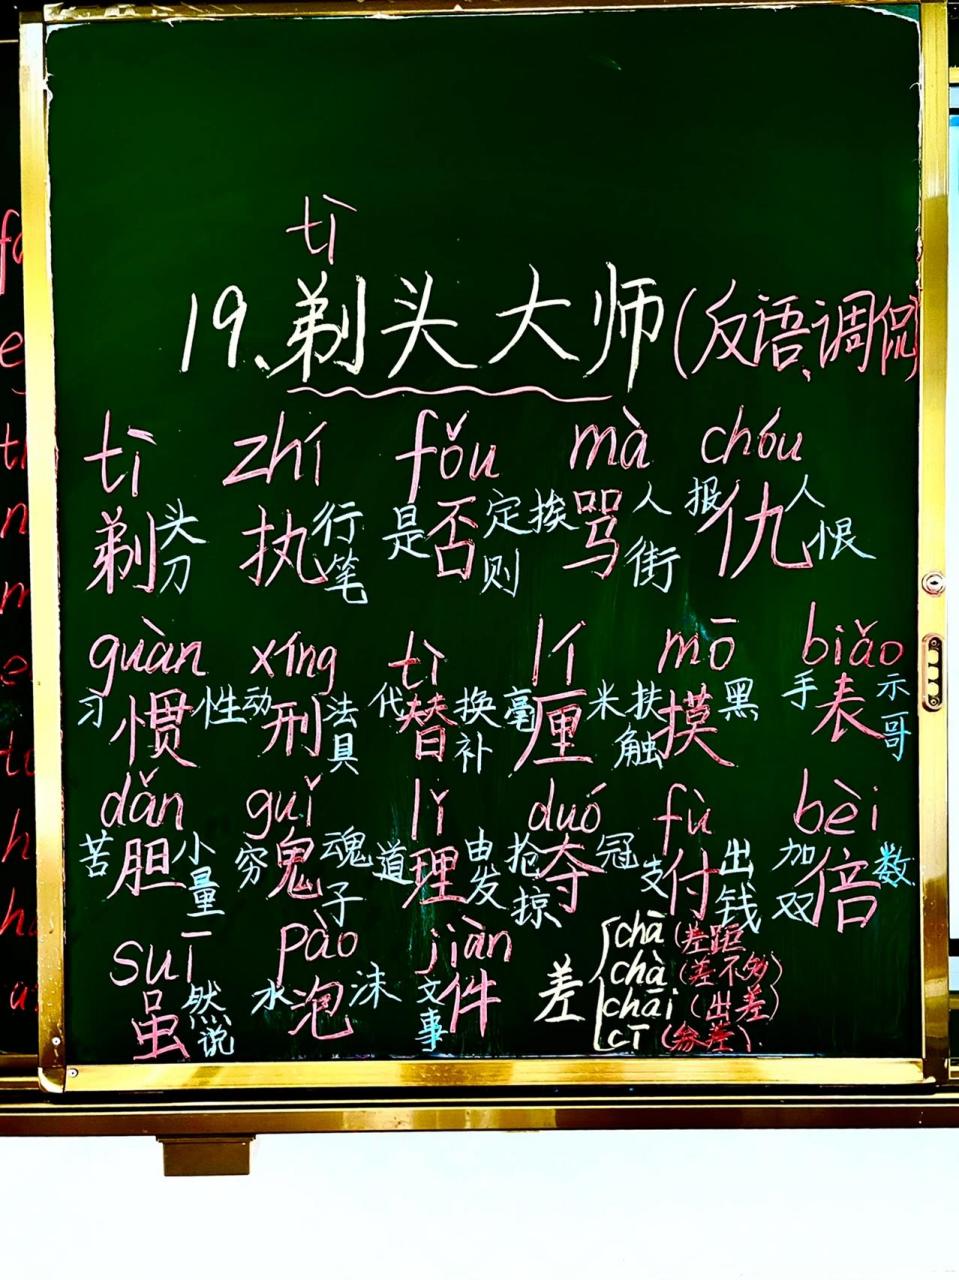 tì
19、剃头大师(反语、调侃)
tì zhí fǒu mà chóu
剃头刀 执行笔 是否定则 挨骂人街 报仇人恨
guàn xíng tì lí mō biǎo
习惯性 动刑法具 代替换补 毫厘米 扶触摸黑 手表示哥
dǎn guǐ lǐ duó fù bèi
苦胆小量 穷鬼魂子 道理由发 抢夺冠掠 支付出钱 加双倍数
suī pào jiàn
虽然说 水泡沫 文事件
差
chā (差距
chà (差不多)
chāi (出差)
cī (参差)